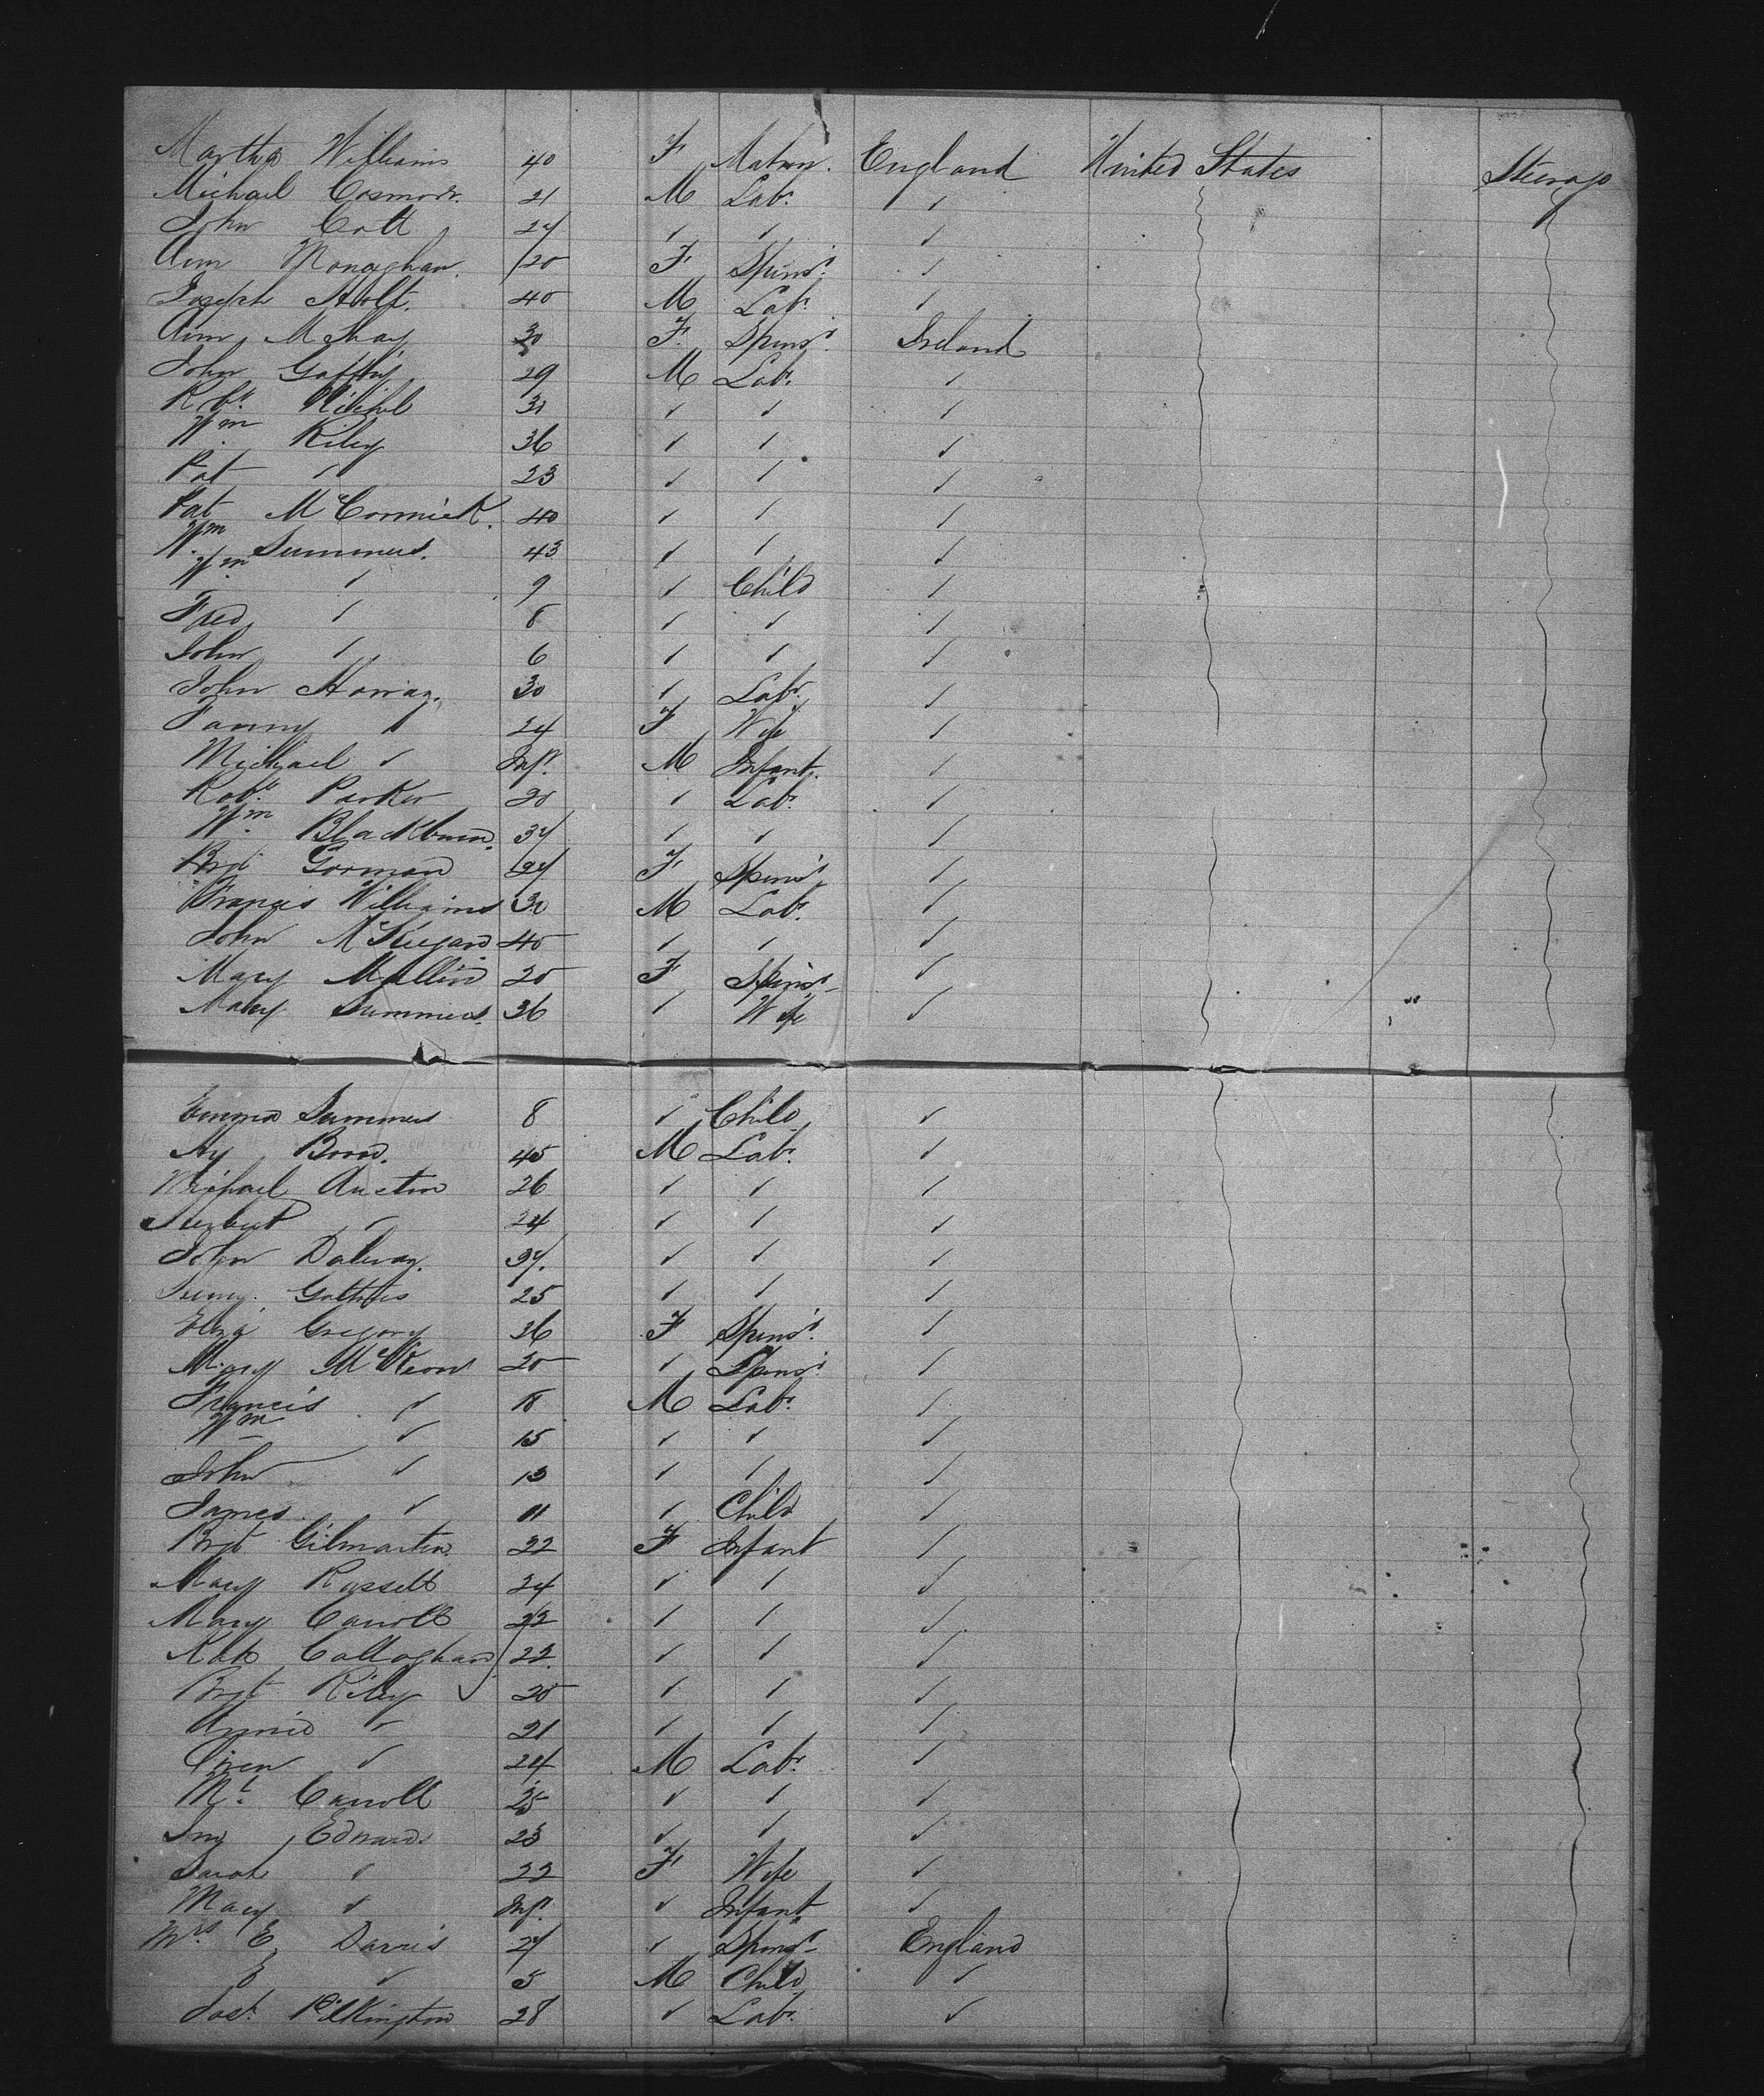 Martha Williams 40 F Matron. England United States Steerage
Michael 21 M Lab. ✓
John 27 ✓ ✓ ✓
Ann Monaghan. 20 F Spinsr. ✓
Joseph Holt. 40 M Lab. ✓
Ann 30 F. Spinsr. Ireland
John 29 M Lab. ✓
Robt. 30 ✓ ✓ ✓
Wm Riley 36 ✓ ✓ ✓
Pat ✓ 23 ✓ ✓ ✓
Pat McCormick. 40 ✓ ✓ ✓
Wm Summers. 43 ✓ ✓ ✓
Wm ✓ 9 ✓ Child ✓
Fred ✓ 8 ✓ ✓ ✓
John ✓ 6 ✓ ✓ ✓
John 30 ✓ Labr. ✓
Fanny ✓ 24 F Wife ✓
Michael ✓ Inft. M Infant. ✓
Robt. Parker 20 ✓ Labr. ✓
Wm Blackburn. 37 ✓ ✓ ✓
Bgt Gorman 27 F Spinsr. ✓
Francis Williams 30 M Labr. ✓
John 40 ✓ ✓ ✓
Mary Mullin 20 F Spinsr. ✓
Mary Summers. 36 ✓ Wife ✓
Emma Summers 8 ✓ Child ✓
45 M Labr. ✓
Michael Austin 26 ✓ ✓ ✓
Herbert ✓ 24 ✓ ✓ ✓
John 37. ✓ ✓ ✓
25 ✓ ✓ ✓
Eliza Gregory 36 F Spinsr. ✓
Mary McKeon 20 ✓ Spinsr. ✓
Francis ✓ 18 M Labr. ✓
Wm ✓ 15 ✓ ✓ ✓
John ✓ 13 ✓ ✓ ✓
James. ✓ 11 ✓ Child ✓
Bgt Gilmartin. 22 F Infant ✓
Mary Russell 24 ✓ ✓ ✓
Mary Carroll 22 ✓ ✓ ✓
Kate Callaghan 22. ✓ ✓ ✓
Bgt Riley 20 ✓ ✓ ✓
Annie ✓ 21 ✓ ✓ ✓
Owen ✓ 24 M Labr. ✓
Ml. Carroll 25 ✓ ✓ ✓
Jno Edwards 23 ✓ ✓ ✓
Sarah ✓ 22 F Wife ✓
Mary ✓ Inft. ✓ Infant ✓
Mrs. E. Darris 27 ✓ Spinsr. England
E ✓ 5 M Child ✓
Jos. Pilkington 28 ✓ Labr. ✓